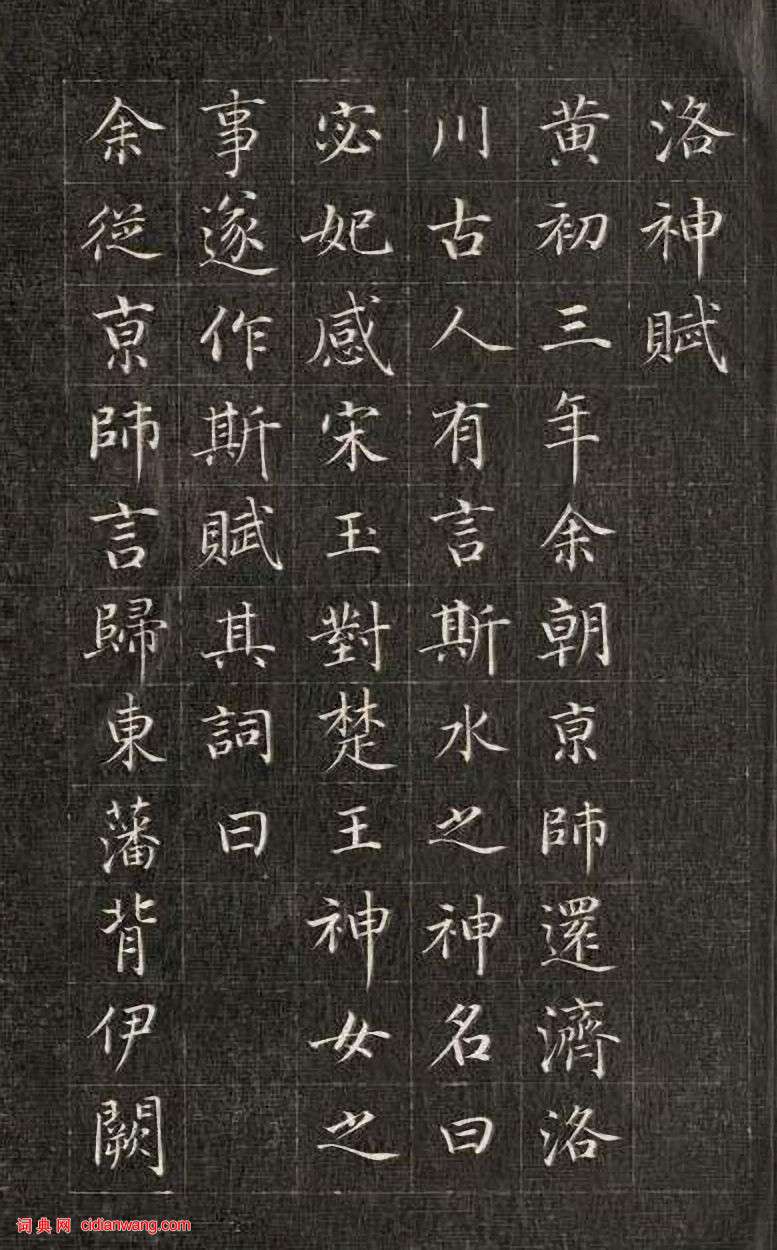 洛神賦
黄初三年余朝京師還濟洛
川古人有言斯水之神名曰
宓妃感宋玉對楚王神女之
事遂作斯賦其詞曰
余從京師言歸東藩背伊闕
词典网 cidianwang.com